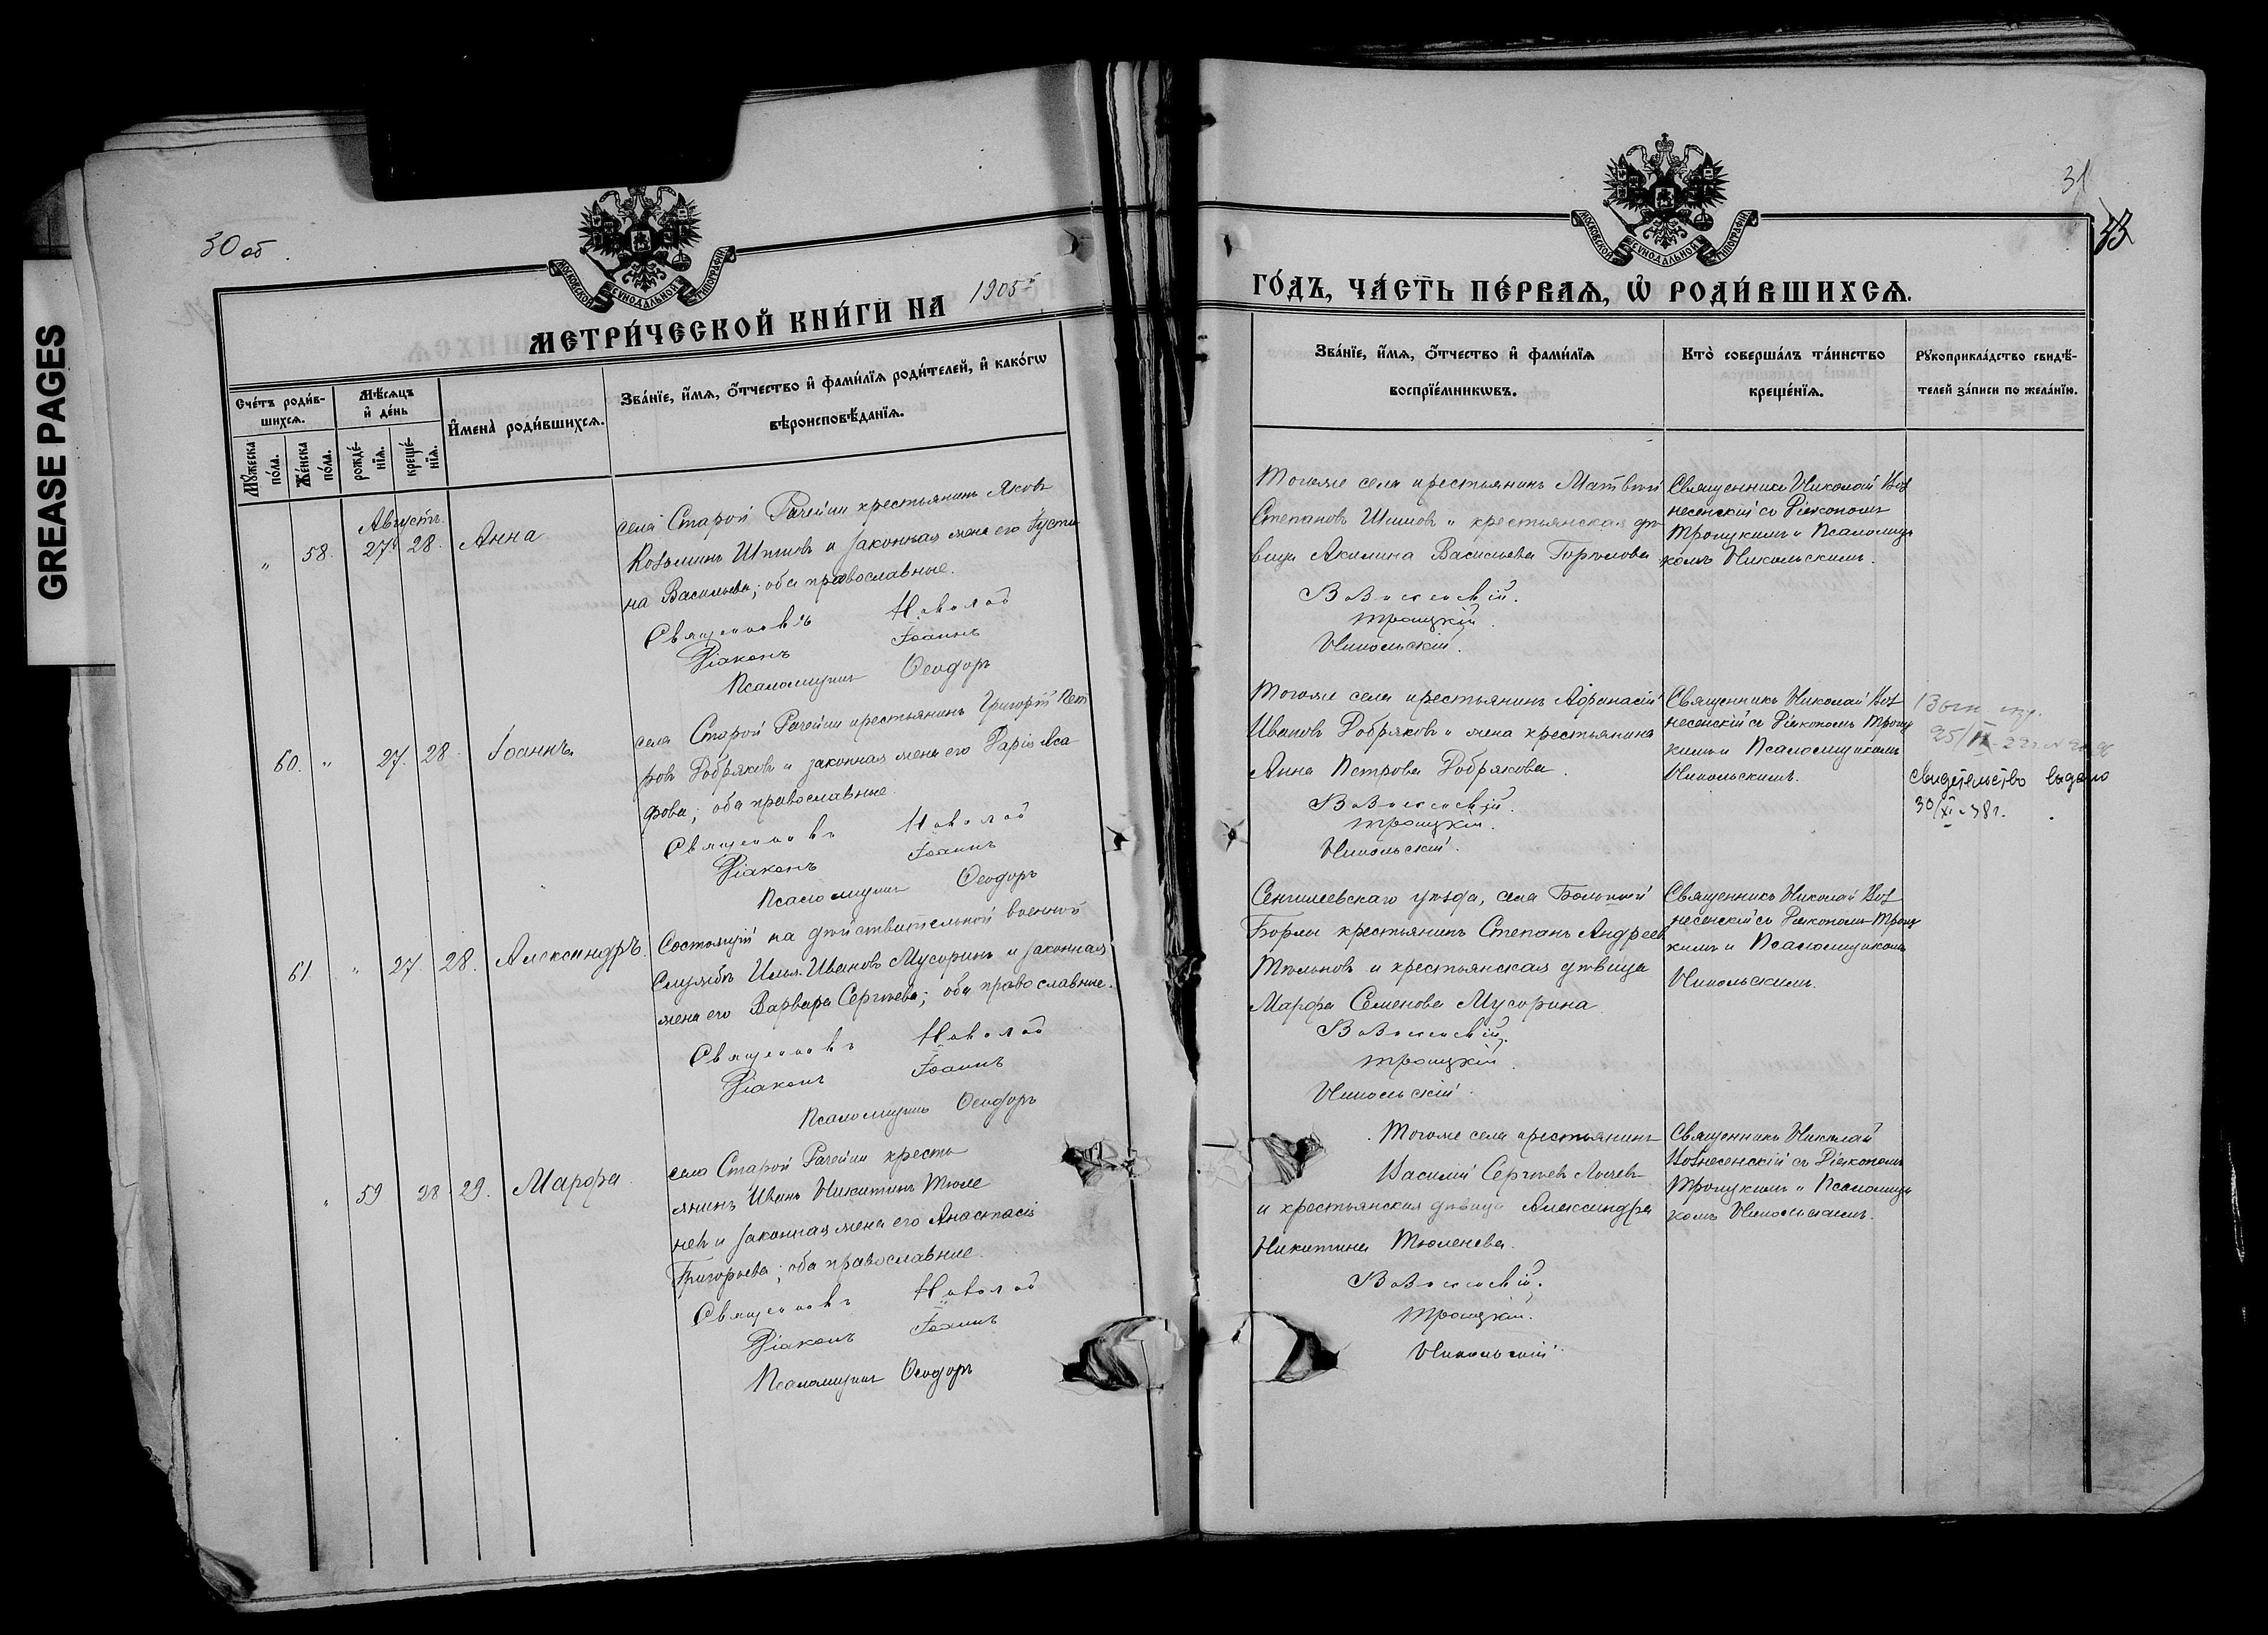 GREASE PAGES
30 об.
МОСКОВСКОЙ СѴНОДАЛЬНОЙ ТИПОГРАФІИ
МЕТРИ́ЧЕСКОЙ КНИ́ГИ НА 1905
Сче́тъ роди́в-
шихсѧ.
Мꙋ́жеска
по́ла.
Же́нска
по́ла.
Мѣ́сяцъ
и҆ де́нь
рожде́-
нїѧ.
креще́-
нїѧ.
И҆мена̀ роди́вшихсѧ.
Зва́нїе, и҆́мѧ, ѻ҆́тчество и҆ фами́лїѧ роди́телей, и҆ како́гѡ
вѣроисповѣ́данїѧ.
Августъ.
" 58. 27. 28. Анна
села Старой Рачейки крестьянинъ Яковъ
Козьминъ и законная жена его Густи
на Васильева; оба православные.
Священникъ Николай
Діаконъ Іоаннъ
Псаломщикъ Ѳеодоръ
60. " 27. 28. Іоаннъ
села Старой Рачейки крестьянинъ Григорій Пет
ровъ Добряковъ и законная жена его Дарія Аса
фова; оба православные.
Священникъ Николай
Діаконъ Іоаннъ
Псаломщикъ Ѳеодоръ
61. " 27. 28. Александръ.
Состоящій на дѣйствительной военной
службѣ Илья Ивановъ Мусоринъ и законная
жена его Варвара Сергѣева; оба православные.
Священникъ Николай
Діаконъ Іоаннъ
Псаломщикъ Ѳеодоръ
" 59 28 29. Марѳа.
села Старой Рачейки кресть
янинъ Иванъ Никитинъ Тюле
невъ и законная жена его Анастасія
Григорьева; оба православные.
Священникъ Николай
Діаконъ Іоаннъ
Псаломщикъ Ѳеодоръ
31
33
МОСКОВСКОЙ СѴНОДАЛЬНОЙ ТИПОГРАФІИ
ГО́ДЪ, ЧА́СТЬ ПЕ́РВАѦ, Ѽ РОДИ́ВШИХСѦ.
Зва́нїе, и҆́мѧ, ѻ҆́тчество и҆ фами́лїѧ
воспрїе́мникѡвъ.
Кто̀ соверша́лъ та́инство
креще́нїѧ.
Рꙋкоприкла́дство свидѣ́-
телей за́писи по жела́нїю.
Тогоже села крестьянинъ Матвѣй
Степановъ и крестьянская дѣ
вица Акилина Васильева
Вознесенскій.
Троицкій.
Никольскій.
Священникъ Николай Воз
несенскій съ Діакономъ
Троицкимъ и Псаломщи
комъ Никольскимъ.
Тогоже села крестьянинъ Аѳанасій
Ивановъ Добряковъ и жена крестьянина
Анна Петрова Добрякова.
Вознесенскій.
Троицкій.
Никольскій.
Священникъ Николай Воз
несенскій съ Діакономъ Троиц
кимъ и Псаломщикомъ
Никольскимъ.
свидетельство выдано
30/XI-38г.
Сенгилеевскаго уѣзда, села Большой
Борлы крестьянинъ Степанъ Андреевъ
и крестьянская дѣвица
Марѳа Семенова Мусорина
Вознесенскій.
Троицкій.
Никольскій.
Священникъ Николай Воз
несенскій съ Діакономъ Троиц
кимъ и Псаломщикомъ
Никольскимъ.
Тогоже села крестьянинъ
Василій Сергѣевъ
и крестьянская дѣвица Александра
Никитина Тюленева.
Вознесенскій.
Троицкій.
Никольскій.
Священникъ Николай
Вознесенскій съ Діакономъ
Троицкимъ и Псаломщи
комъ Никольскимъ.